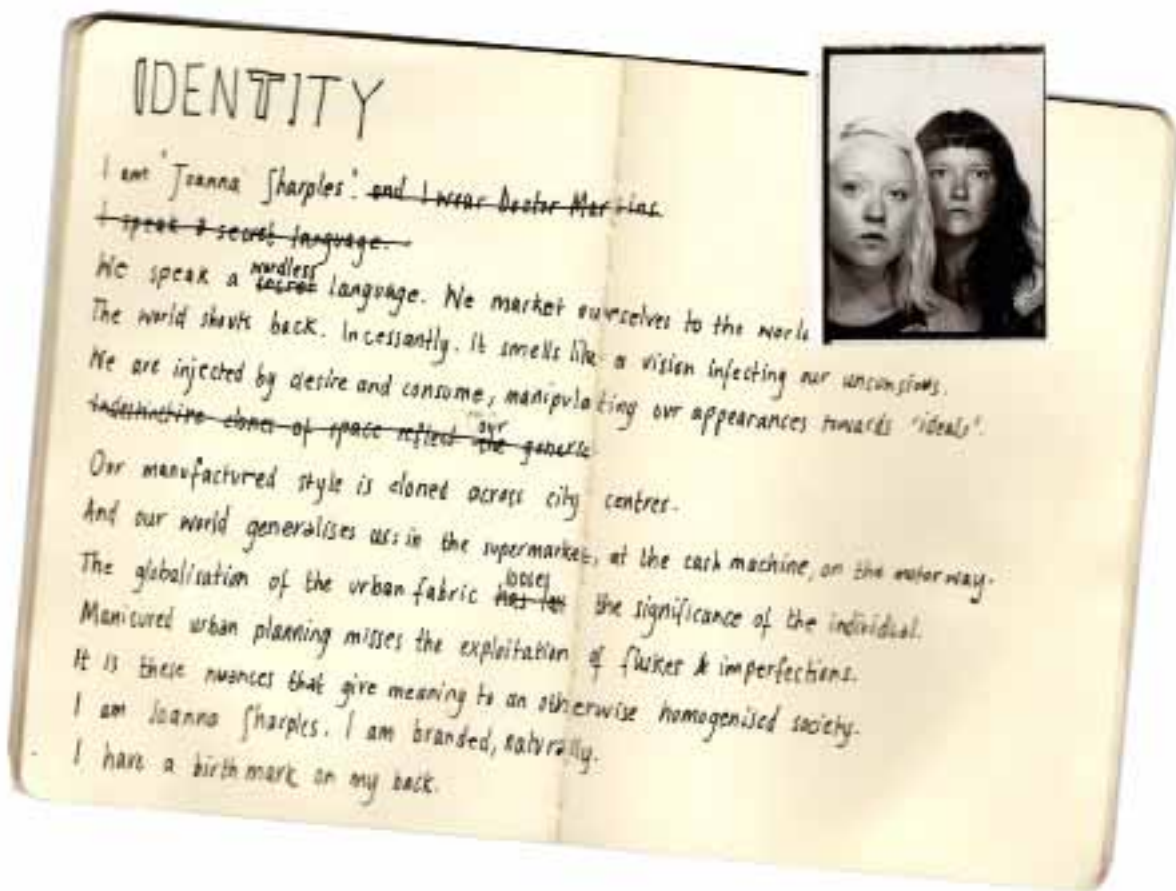 IDENTITY
I am "Joanna Sharples". and I wear Doctor Martins
I speak a secret language.
wordless
We speak a secret language. We market ourselves to the world
The world shouts back. Incessantly. It smells like a vision infecting our unconsious.
We are injected by desire and consume, manipulating our appearances towards "ideals".
our
clones of space reflect the generic
Our manufactured style is cloned across city centres.
And our world generalises us: in the supermarket, at the cash machine, on the motorway.
looses
The globalisation of the urban fabric has let the significance of the individual.
Manicured urban planning misses the exploitation of flukes & imperfections.
It is these nuances that give meaning to an otherwise homogenised society.
I am Joanna Sharples. I am branded, naturally.
I have a birthmark on my back.